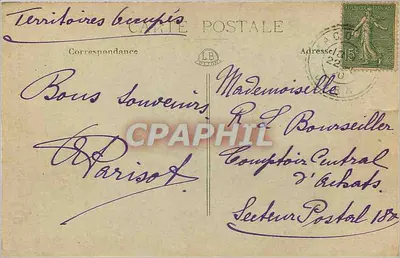 Territoires Occupés
CARTE POSTALE
Correspondance
LB
Adresse
Bons souvenirs
Parisot
Mademoiselle
R L Bourseiller
Comptoir Central
d'Achats
Secteur Postal 180
CPARAMA